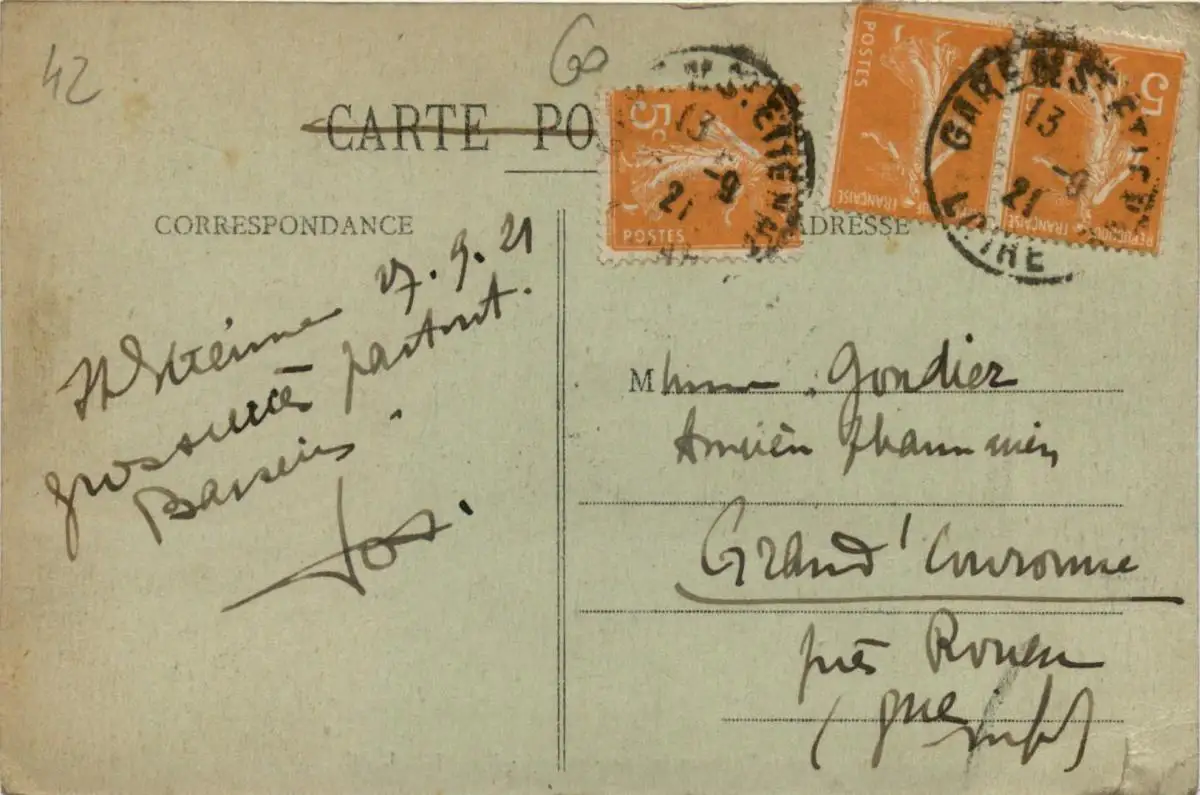 42
60
CARTE PO
CORRESPONDANCE
ADRESSE
5c
POSTES
POSTES
RÉPUBLIQUE FRANÇAISE
5
GARE DE ST ETIENNE
13
-9
21
LOIRE
GARE DE ST ETIENNE
13
-9
21
LOIRE
St Etienne 17.9.21
grossuccès partout.
Baisers.
Jos.
Mme. Gondier
Ancien Pharmacien
Grand' Couronne
près Rouen
(Sne Infre)